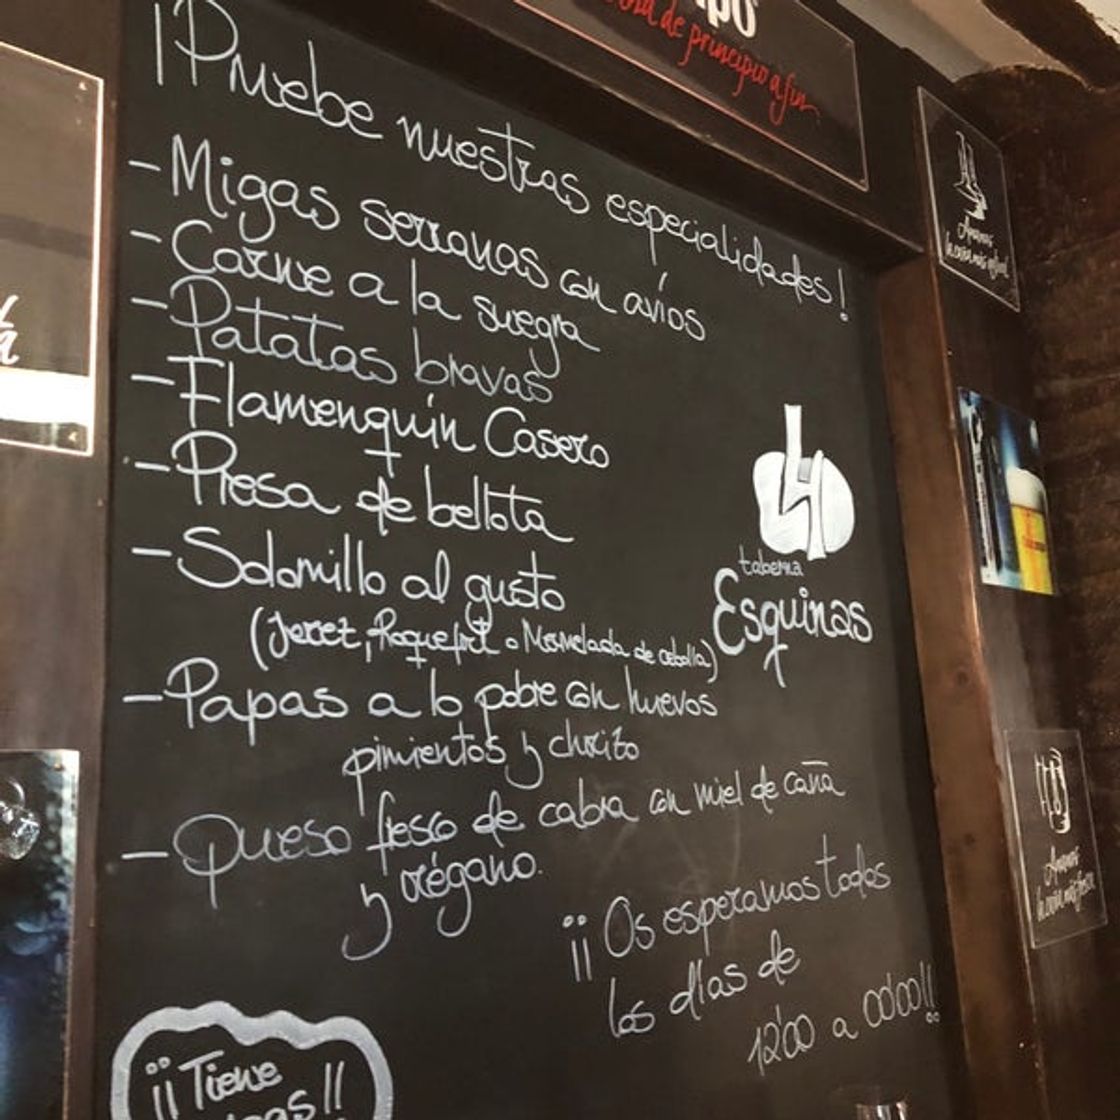 de principio a fin
¡Pruebe nuestras especialidades!
- Migas serranas con avíos
- Carne a la suegra
- Patatas bravas
- Flamenquín Casero
- Presa de bellota
- Solomillo al gusto
(Jerez, Roquefort o Mermelada de cebolla)
- Papas a lo pobre con huevos
pimientos y chorizo
- Queso fresco de cabra con miel de caña
y orégano.
taberna
Esquinas
¡¡Os esperamos todos
los días de
12'00 a 00'00!!
¡¡Tiene